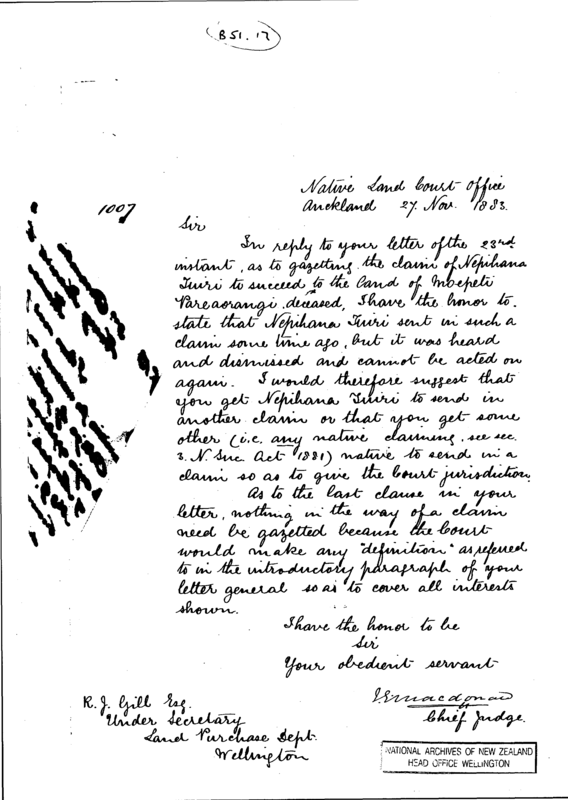 B51.17
1007
Native Land Court Office
Auckland 27. Nov. 1883.
Sir
In reply to your letter of the 23rd
instant, as to gazetting the claim of Nepihana
Tuiri to succeed to the land of
Pareaorangi deceased, I have the honor to
state that Nepihana Tuiri sent in such a
claim some time ago, but it was heard
and dismissed and cannot be acted on
again. I would therefore suggest that
you get Nepihana Tuiri to send in
another claim or that you get some
other (i.e. any native claiming, see sec.
3. N. Suc. Act 1881) native to send in a
claim so as to give the Court jurisdiction.
As to the last clause in your
letter, nothing in the way of a claim
need be gazetted because the Court
would make any "definition" as referred
to in the introductory paragraph of your
letter general so as to cover all interests
shown.
I have the honor to be
Sir
Your obedient servant
Macdonald
Chief Judge.
R. J. Gill Esq.
Under Secretary
Land Purchase Dept.
Wellington
NATIONAL ARCHIVES OF NEW ZEALAND
HEAD OFFICE WELLINGTON